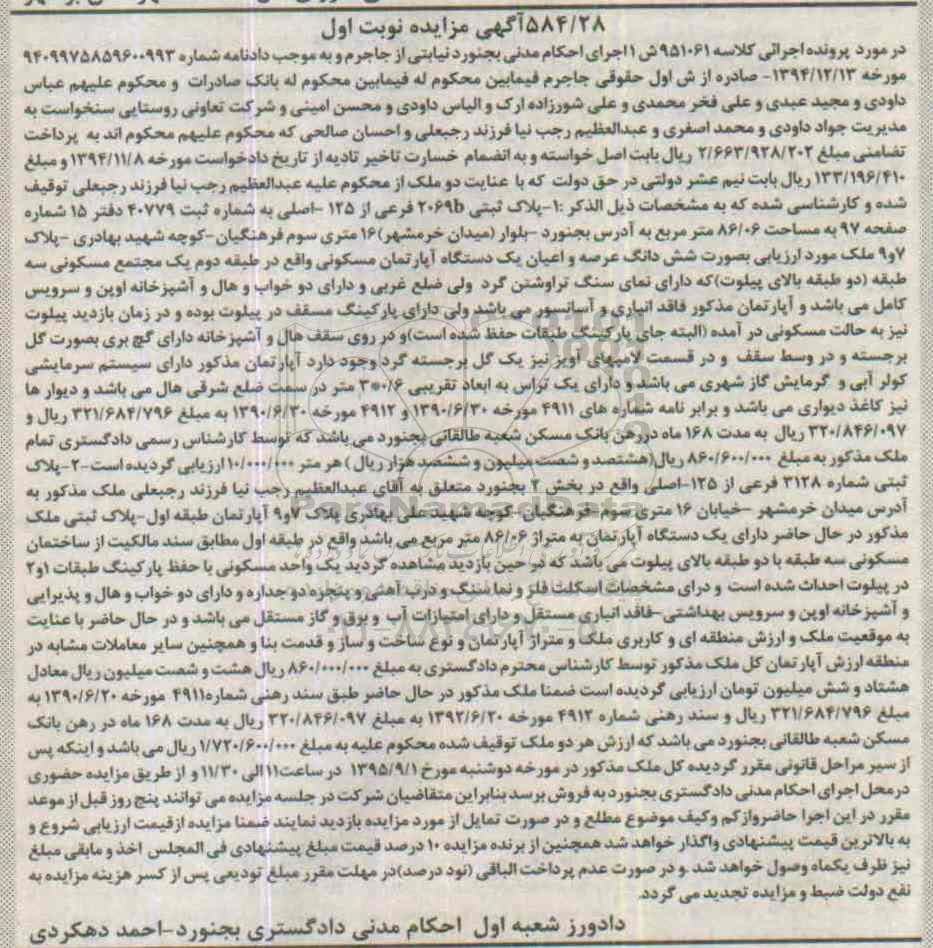 ۵۸۴/۲۸آگهی مزایده نوبت اول
در مورد پرونده اجرائی کلاسه ۹۵۱۰۶۱ش ۱اجرای احکام مدنی بجنورد نیابتی از جاجرم و به موجب دادنامه شماره ۹۴۰۹۹۷۵۸۵۹۶۰۰۹۹۳
مورخه ۱۳۹۴/۱۲/۱۳- صادره از ش اول حقوقی جاجرم فیمابین محکوم له فیمابین محکوم له بانک صادرات و محکوم علیهم عباس
داودی و مجید عبدی و علی فخر محمدی و علی شورزاده ارک و الیاس داودی و محسن امینی و شرکت تعاونی روستایی سنخواست به
مدیریت جواد داودی و محمد اصغری و عبدالعظیم رجب نیا فرزند رجبعلی و احسان صالحی که محکوم علیهم محکوم اند به پرداخت
تضامنی مبلغ ۲/۶۶۳/۹۲۸/۲۰۲ ریال بابت اصل خواسته و به انضمام خسارت تاخیر تادیه از تاریخ دادخواست مورخه ۱۳۹۴/۱۱/۸ و مبلغ
۱۳۳/۱۹۶/۴۱۰ ریال بابت نیم عشر دولتی در حق دولت که با عنایت دو ملک از محکوم علیه عبدالعظیم رجب نیا فرزند رجبعلی توقیف
شده و کارشناسی شده که به مشخصات ذیل الذکر :۱-پلاک ثبتی ۲۰۶۹b فرعی از ۱۲۵ -اصلی به شماره ثبت ۴۰۷۷۹ دفتر ۱۵ شماره
صفحه ۹۷ به مساحت ۸۶/۰۶ متر مربع به آدرس بجنورد -بلوار (میدان خرمشهر)۱۶ متری سوم فرهنگیان-کوچه شهید بهادری -پلاک
۷و۹ ملک مورد ارزیابی بصورت شش دانگ عرصه و اعیان یک دستگاه آپارتمان مسکونی واقع در طبقه دوم یک مجتمع مسکونی سه
طبقه (دو طبقه بالای پیلوت)که دارای نمای سنگ تراوشتن گرد ولی ضلع غربی و دارای دو خواب و هال و آشپزخانه اوپن و سرویس
کامل می باشد و آپارتمان مذکور فاقد انباری و آسانسور می باشد ولی دارای پارکینگ مسقف در پیلوت بوده و در زمان بازدید پیلوت
نیز به حالت مسکونی در آمده (البته جای پارکینگ طبقات حفظ شده است)و در روی سقف هال و آشپزخانه دارای گچ بری بصورت گل
برجسته و در وسط سقف و در قسمت لامپهای آویز نیز یک گل برجسته گرد وجود دارد آپارتمان مذکور دارای سیستم سرمایشی
کولر آبی و گرمایش گاز شهری می باشد و دارای یک تراس به ابعاد تقریبی ۰/۶*۳ متر در سمت ضلع شرقی هال می باشد و دیوار ها
نیز کاغذ دیواری می باشد و برابر نامه شماره های ۴۹۱۱ مورخه ۱۳۹۰/۶/۳۰ و ۴۹۱۲ مورخه ۱۳۹۰/۶/۳۰ به مبلغ ۳۲۱/۶۸۴/۷۹۶ ریال و
۳۲۰/۸۴۶/۰۹۷ ریال به مدت ۱۶۸ ماه دررهن بانک مسکن شعبه طالقانی بجنورد می باشد که توسط کارشناس رسمی دادگستری تمام
ملک مذکور به مبلغ ۸۶۰/۶۰۰/۰۰۰ ریال(هشتصد و شصت میلیون و ششصد هزار ریال ) هر متر ۱۰/۰۰۰/۰۰۰ ارزیابی گردیده است-۲-پلاک
ثبتی شماره ۳۱۲۸ فرعی از ۱۲۵-اصلی واقع در بخش ۲ بجنورد متعلق به آقای عبدالعظیم رجب نیا فرزند رجبعلی ملک مذکور به
آدرس میدان خرمشهر -خیابان ۱۶ متری سوم فرهنگیان-کوچه شهید علی بهادری پلاک ۷و۹ آپارتمان طبقه اول-پلاک ثبتی ملک
مذکور در حال حاضر دارای یک دستگاه آپارتمان به متراژ ۸۶/۰۶ متر مربع می باشد واقع در طبقه اول مطابق سند مالکیت از ساختمان
مسکونی سه طبقه با دو طبقه بالای پیلوت می باشد که در حین بازدید مشاهده گردید یک واحد مسکونی با حفظ پارکینگ طبقات ۱و۲
در پیلوت احداث شده است و درای مشخصات اسکلت فلز و نما سنگ و درب آهنی و پنجره دو جداره و دارای دو خواب و هال و پذیرایی
و آشپزخانه اوپن و سرویس بهداشتی-فاقد انباری مستقل و دارای امتیازات آب و برق و گاز مستقل می باشد و در حال حاضر با عنایت
به موقعیت ملک و ارزش منطقه ای و کاربری ملک و متراژ آپارتمان و نوع ساخت و ساز و قدمت بنا و همچنین سایر معاملات مشابه در
منطقه ارزش آپارتمان کل ملک مذکور توسط کارشناس محترم دادگستری به مبلغ ۸۶۰/۰۰۰/۰۰۰ ریال هشت و شصت میلیون ریال معادل
هشتاد و شش میلیون تومان ارزیابی گردیده است ضمنا ملک مذکور در حال حاضر طبق سند رهنی شماره۴۹۱۱ مورخه ۱۳۹۰/۶/۲۰ به
مبلغ ۳۲۱/۶۸۴/۷۹۶ ریال و سند رهنی شماره ۴۹۱۲ مورخه ۱۳۹۲/۶/۲۰ به مبلغ ۳۲۰/۸۴۶/۰۹۷ ریال به مدت ۱۶۸ ماه در رهن بانک
مسکن شعبه طالقانی بجنورد می باشد که ارزش هر دو ملک توقیف شده محکوم علیه به مبلغ ۱/۷۲۰/۶۰۰/۰۰۰ ریال می باشد و اینکه پس
از سیر مراحل قانونی مقرر گردیده کل ملک مذکور در مورخه دوشنبه مورخ ۱۳۹۵/۹/۱ در ساعت۱۱ الی ۱۱/۳۰ و از طریق مزایده حضوری
درمحل اجرای احکام مدنی دادگستری بجنورد به فروش برسد بنابراین متقاضیان شرکت در جلسه مزایده می توانند پنج روز قبل از موعد
مقرر در این اجرا حاضرواز کم وکیف موضوع مطلع و در صورت تمایل از مورد مزایده بازدید نمایند ضمنا مزایده ازقیمت ارزیابی شروع و
به بالاترین قیمت پیشنهادی واگذار خواهد شد همچنین از برنده مزایده ۱۰ درصد قیمت مبلغ پیشنهادی فی المجلس اخذ و مابقی مبلغ
نیز ظرف یکماه وصول خواهد شد .و در صورت عدم پرداخت الباقی (نود درصد)در مهلت مقرر مبلغ تودیعی پس از کسر هزینه مزایده به
نفع دولت ضبط و مزایده تجدید می گردد.
دادورز شعبه اول احکام مدنی دادگستری بجنورد-احمد دهکردی